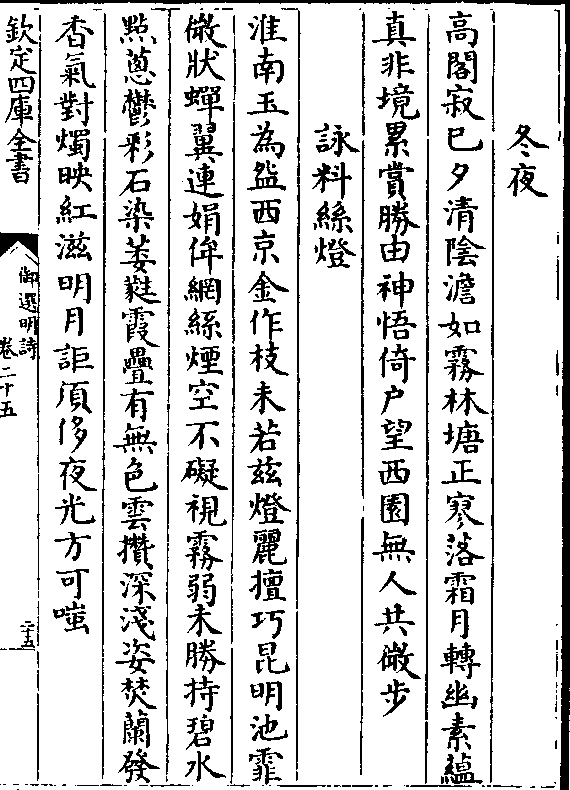 冬夜
高閣寂已夕清陰澹如霧林塘正寥落霜月轉幽素蘊
真非境累賞勝由神悟倚户望西園無人共㣲步
詠料絲燈
淮南玉為盌西京金作枝未若兹燈麗擅巧昆明池霏
㣲狀蟬翼連娟侔網絲煙空不礙視霧弱未勝持碧水
㸃蔥鬱彩石染萎蕤霞疊有無色雲攢深淺姿焚蘭發
香氣對燭映紅滋明月詎須侈夜光方可嗤
欽定四庫全書
御選明詩
卷二十五
二十五